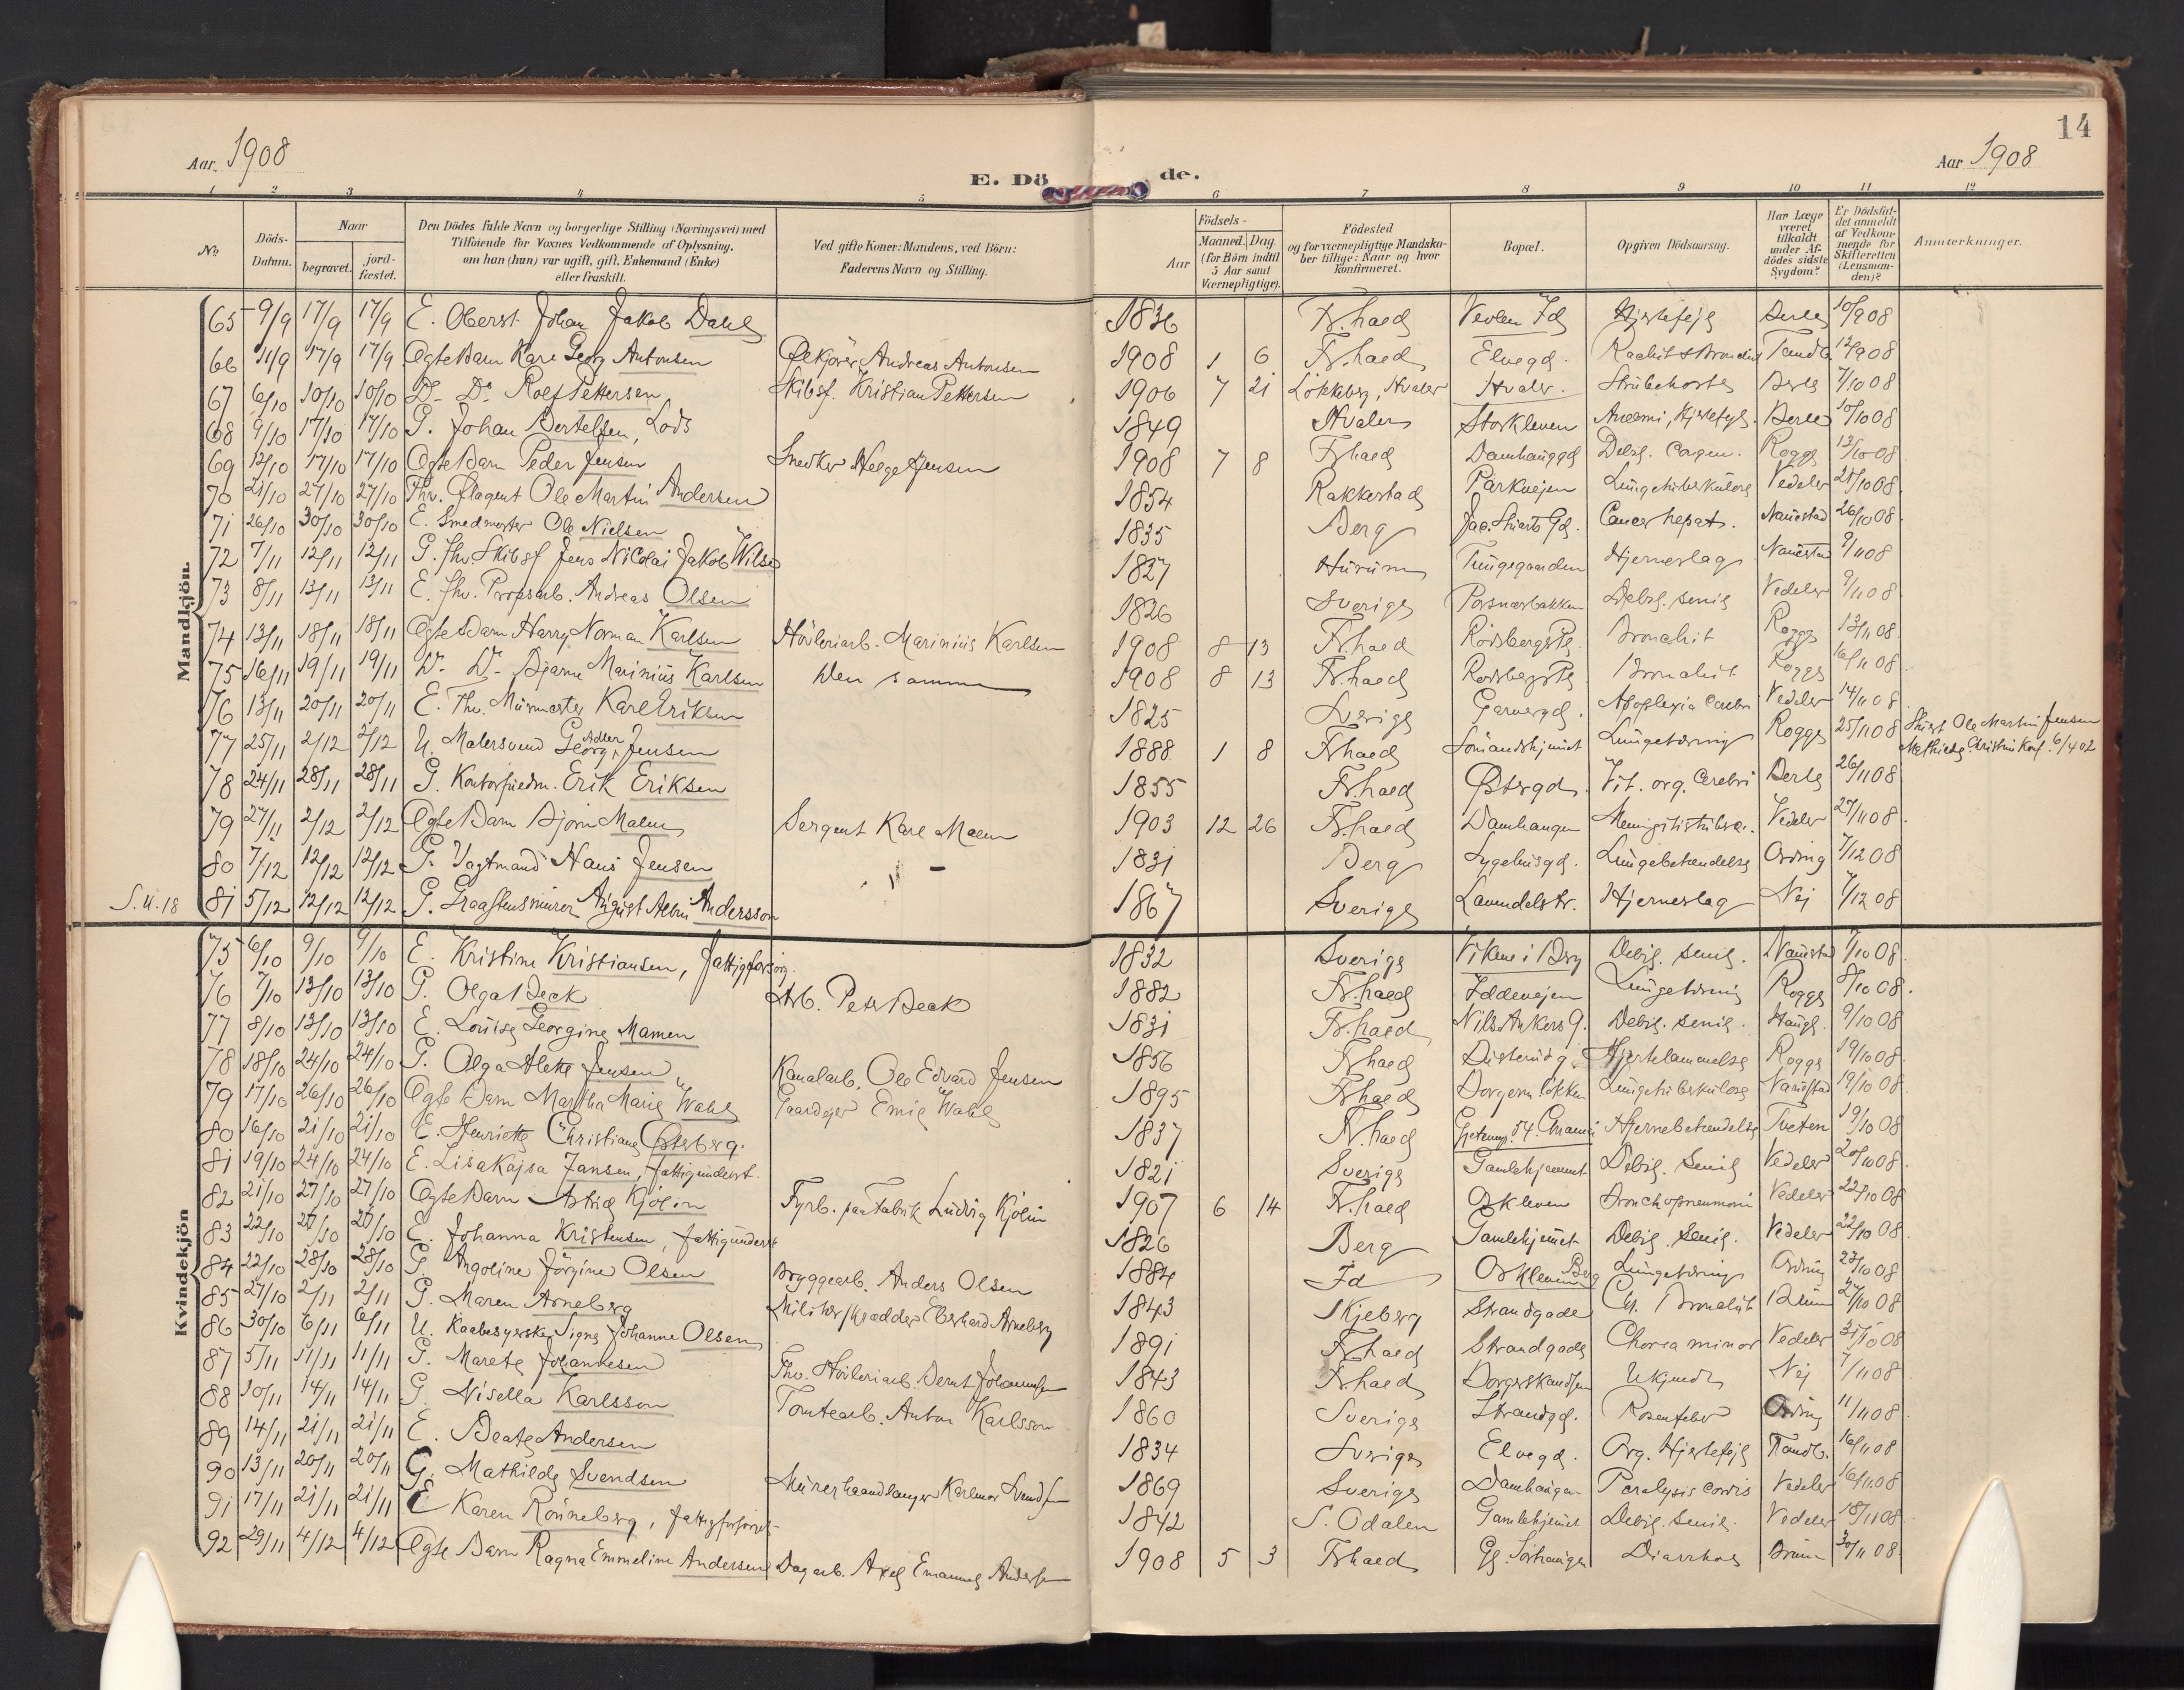 14
Aar 1908
E. Dö de.
Aar 1908
1 2 3 4 5 6 7 8 9 10 11 12
No
Döds-Datum.
Naar
begravet.
jord-fæstet.
Den Dödes fulde Navn og borgerlige Stilling (Næringsvei) med
Tilföiende for Voxnes Vedkommende af Oplysning,
om han (hun) var ugift, gift, Enkemand (Enke)
eller fraskilt.
Ved gifte Koner: Mandens, ved Börn:
Faderens Navn og Stilling.
Födsels-
Aar
Maaned. Dag.
(for Börn indtil
5 Aar samt
Værnepligtige).
Födested
og for værnepligtige Mandska-
ber tillige: Naar og hvor
konfirmeret.
Bopæl.
Opgiven Dödsaarsag.
Har Læge
været
tilkaldt
under Af-
dödes sidste
Sygdom?
Er Dödsfal-
det anmeldt
af Vedkom-
mende for
Skifteretten
(Lensman-
den)?
Anmærkninger.
Mandkjön.
65 9/9 17/9 17/9 E. Oberst Johan Jakob Dahl 1836 Fr.hald Id Hjertefejl 10/9 08
66 11/9 17/9 17/9 Ægte Barn Karl Georg Antonsen Ølkjører Andreas Antonsen 1908 1 6 Fr.hald Elvegd. Tandb. 12/9 08
67 6/10 10/10 10/10 D- Do Rolf Pettersen Skibsf. Kristian Pettersen 1906 7 21 Lökkeberg, Hvaler Hvaler. Strubehoste 7/10 08
68 9/10 17/10 17/10 G. Johan Bertelsen, Lods 1849 Hvaler Storkleven Anæmi, Hjertefejl. 10/10 08
69 12/10 17/10 17/10 Ægte Barn Peder Jensen Snedker Helge Jensen 1908 7 8 Frhald Damhauggd Debil. congen. Rogge 13/10 08
70 21/10 27/10 27/10 Fhv. Ølagent Ole Martin Andersen 1854 Rakkestad Parkvejen Lungetuberkulose Vedeler 21/10 08
71 26/10 30/10 30/10 E. Smedmester Ole Nielsen 1835 Berg Jac. Stuarts Gd. Cancer hepat. Nauestad 26/10 08
72 7/11 12/11 12/11 G. Fhv. Skibsf Jens Nicolai Jakob Wilse 1827 Hurum Tungegaarden Hjerneslag Nauestad 9/11 08
73 8/11 13/11 13/11 E. Fhv. Propsarb. Andreas Olsen 1826 Sverige Debil. senil Vedeler 9/11 08
74 13/11 18/11 18/11 Ægte Barn Harry Norman Karlsen Hövleriarb. Marinius Karlsen 1908 8 13 Fr.hald Rödsbergs Pl. Bronchit Rogge 13/11 08
75 16/11 19/11 19/11 D- D- Bjarne Marinius Karlsen Den samme 1908 8 13 Fr.hald Rödsbergs Pl. Bronchit Rogge 16/11 08
76 13/11 20/11 20/11 E. Fhv. Murmester Karl Eriksen 1825 Sverige Garvergd. Apoplexia Cerebri Vedeler 14/11 08
77 25/11 2/12 2/12 U. Malersvend Georg Adler Jensen 1888 1 8 Frhald Sömandshjemmet Lungetæring Rogge 25/11 08 Ole Martin Jensen
Mathilde Christin Konf. 6/4 02
78 24/11 28/11 28/11 G. Kontorfuldm. Erik Eriksen 1855 Fr.hald Østergd. Vit. org. Cerebri 26/11 08
79 27/11 2/12 2/12 Ægte Barn Björn Malm Sergent Karl Malm 1903 12 26 Fr.hald Damhaugen Vedeler 27/11 08
80 7/12 12/12 12/12 G. Vagtmand Hans Jensen 1831 Berg Sygehusgd. Lungebetændelse Ording 7/12 08
S. U. 18 81 5/12 12/12 12/12 G. Graastensmurer August Albin Andersson 1867 Sverige Lavendelstr. Hjerneslag Nej 7/12 08
Kvindekjön
75 6/10 9/10 9/10 E. Kristine Kristiansen, Fattigforsörg. 1832 Sverige Vikene i Berg Debil. senil. Nauestad 7/10 08
76 7/10 13/10 13/10 G. Olga Beck Arb. Peter Beck 1882 Fr.hald Iddevejen Lungetæring Rogge 8/10 08
77 8/10 13/10 13/10 E. Louise Georgine Mamen 1831 Fr.hald Nils Ankers G. Debil. senil. 9/10 08
78 18/10 24/10 24/10 G. Olga Alette Jensen Kanalarb. Ole Edvard Jensen 1856 Frhald Hjertelammelse Rogge 19/10 08
79 17/10 26/10 26/10 Ægte Barn Martha Marie Wahl Gaardejer Emil Wahl 1895 Frhald Borgerm. lökken Lungetuberkulose Nauestad 19/10 08
80 16/10 21/10 21/10 E. Henriette Christiane Österberg. 1837 Fr.hald Hjernebetændelse 19/10 08
81 19/10 24/10 24/10 E. Lisa Kajsa Jansen, Fattigunderst. 1821 Sverige Gamlehjemmet Debil. senil Vedeler 20/10 08
82 21/10 27/10 27/10 Ægte Barn Astrid Kjölin Fyrb. paa Fabrik Ludvig Kjölin 1907 6 14 Fr.hald Orkleven Bronchopneumoni Vedeler 22/10 08
83 22/10 27/10 27/10 E. Johanna Kristensen, Fattigunderst 1826 Berg Gamlehjemmet Debil. senil. Vedeler 22/10 08
84 22/10 28/10 28/10 G. Angoline Jörgine Olsen Bryggearb. Anders Olsen 1884 Id Orkleven Berg Lungetæring Ording 23/10 08
85 27/10 2/11 2/11 G. Maren Arneberg Militærskrædder Eberhard Arneberg 1843 Skjeberg Strandgade Ch. Bronchit 27/10 08
86 30/10 6/11 6/11 U. Kaabesyerske Signe Johanne Olsen 1891 Frhald Strandgade Chorea minor Vedeler 31/10 08
87 5/11 11/11 11/11 G. Marete Johannesen Fhv. Hövleriarb. Bernt Johannesen 1843 Frhald Borgerskandsen Ukjendt Nej 7/11 08
88 10/11 14/11 14/11 G. Nisella Karlsson Tomtearb. Anton Karlsson 1860 Sverige Strandgd. Rosenfeber Ording 11/11 08
89 14/11 21/11 21/11 E. Beate Andersen 1834 Sverige Elvegd. Org. Hjertefejl Tandb. 16/11 08
90 13/11 20/11 20/11 G. Mathilde Svendsen Murerhaandlanger Karlmar Svendsen 1869 Sverige Damhaugen Paralysis cordis Vedeler 16/11 08
91 17/11 21/11 21/11 E Karen Rönneberg, Fattigforsörget 1842 S. Odalen Gamlehjemmet Debil. senil. Vedeler 18/11 08
92 29/11 4/12 4/12 Ægte Barn Ragna Emmeline Andersen Dagarb. Axel Emanuel Andersen 1908 5 3 Frhald Gl. Sörhaugen Diarrhoe 30/11 08